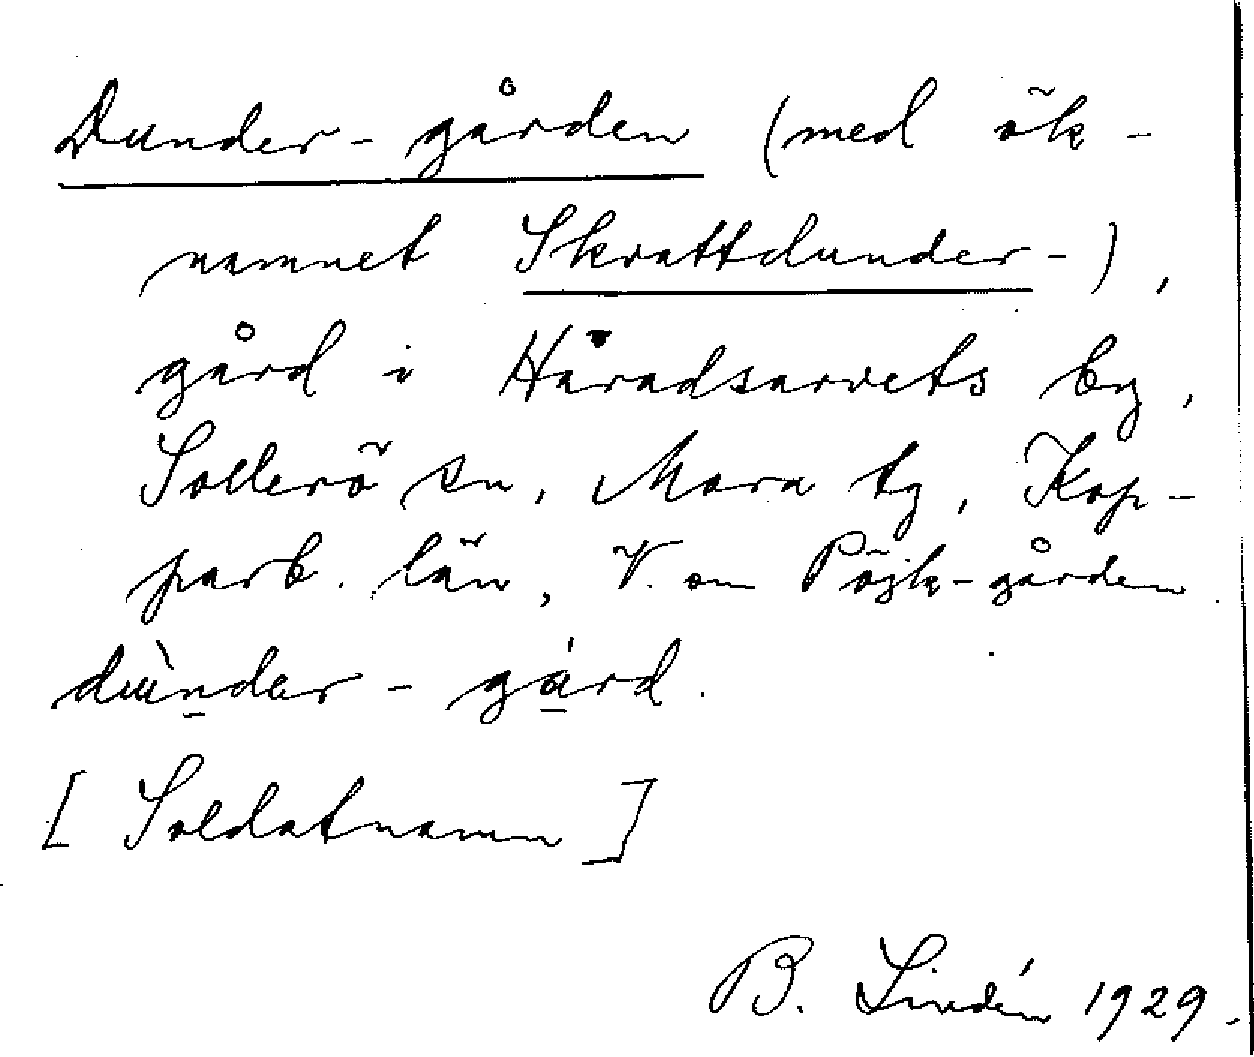 Dunder-gården (med ök-
namnet Skrattdunder-),
gård i Håradsarvets by,
Sollerö sn, Mora tg, Kop-
parb. län, V. om Pöjk-gården.
dùnder-gárd.
[Soldatnamn]
B. Lindén 1929.